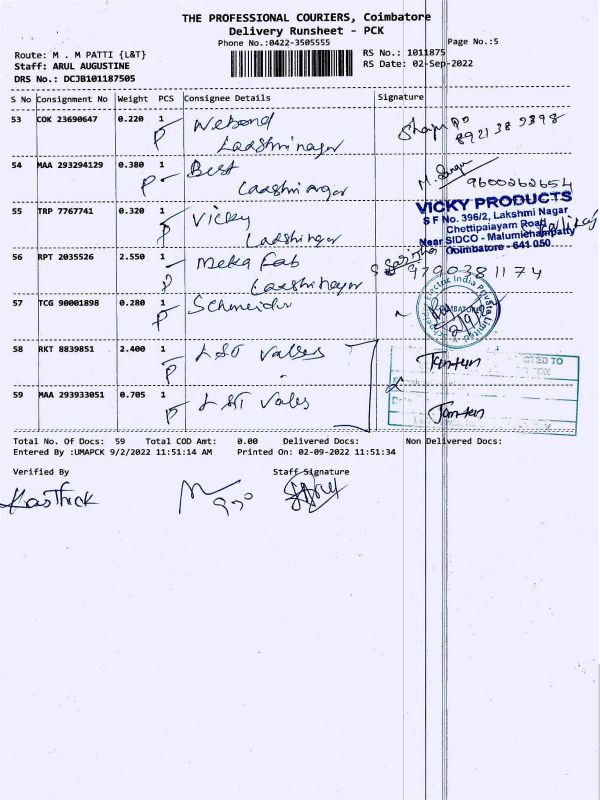 THE PROFESSIONAL COURIERS, Coimbatore
Delivery Runsheet - PCK
Phone No.:0422-3505555
Page No.:5
Route: M . M PATTI {L&T}
RS No.: 1011875
Staff: ARUL AUGUSTINE
RS Date: 02-Sep-2022
DRS No.: DCJB101187505
S No Consignment No Weight PCS Consignee Details Signature
53 COK 23690647 0.220 1
P
Laxshmi nagar
8921389898
54 MAA 293294129 0.380 1 Best
P
9600262654
55 TRP 7767741 0.320 1 Vicky
P
VICKY PRODUCTS
S F No. 396/2, Lakshmi Nagar
Chettipalayam Road
Near SIDCO - Malumichampatty
Coimbatore - 641 050
56 RPT 2035526 2.550 1 Meka Fab
P
9790381174
57 TCG 90001898 0.280 1 Schneider
P
Electric India Private Limited
COIMBATORE
58 RKT 8839851 2.400 1 L&T Valves
P
59 MAA 293933051 0.705 1 L&T Valves
P
Total No. Of Docs: 59 Total COD Amt: 0.00 Delivered Docs: Non Delivered Docs:
Entered By :UMAPCK 9/2/2022 11:51:14 AM Printed On: 02-09-2022 11:51:34
Verified By Staff Signature
Karthick